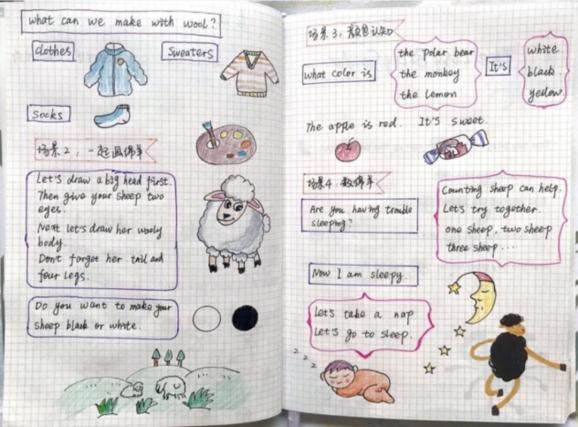 what can we make with wool?
clothes
sweaters
socks
场景2,一起画绵羊
Let's draw a big head first.
Then give your sheep two
eyes.
Next let's draw her wooly
body.
Don't forget her tail and
four legs.
Do you want to make your
sheep black or white.
场景3,颜色认知
what color is
the polar bear
the monkey
the lemon
It's
white
black
yellow
The apple is red. It's sweet.
场景4,数绵羊
Are you having trouble
sleeping?
Counting sheep can help.
Let's try together.
one sheep, two sheep
three sheep ....
Now I am sleepy
Let's take a nap
Let's go to sleep.
z z z